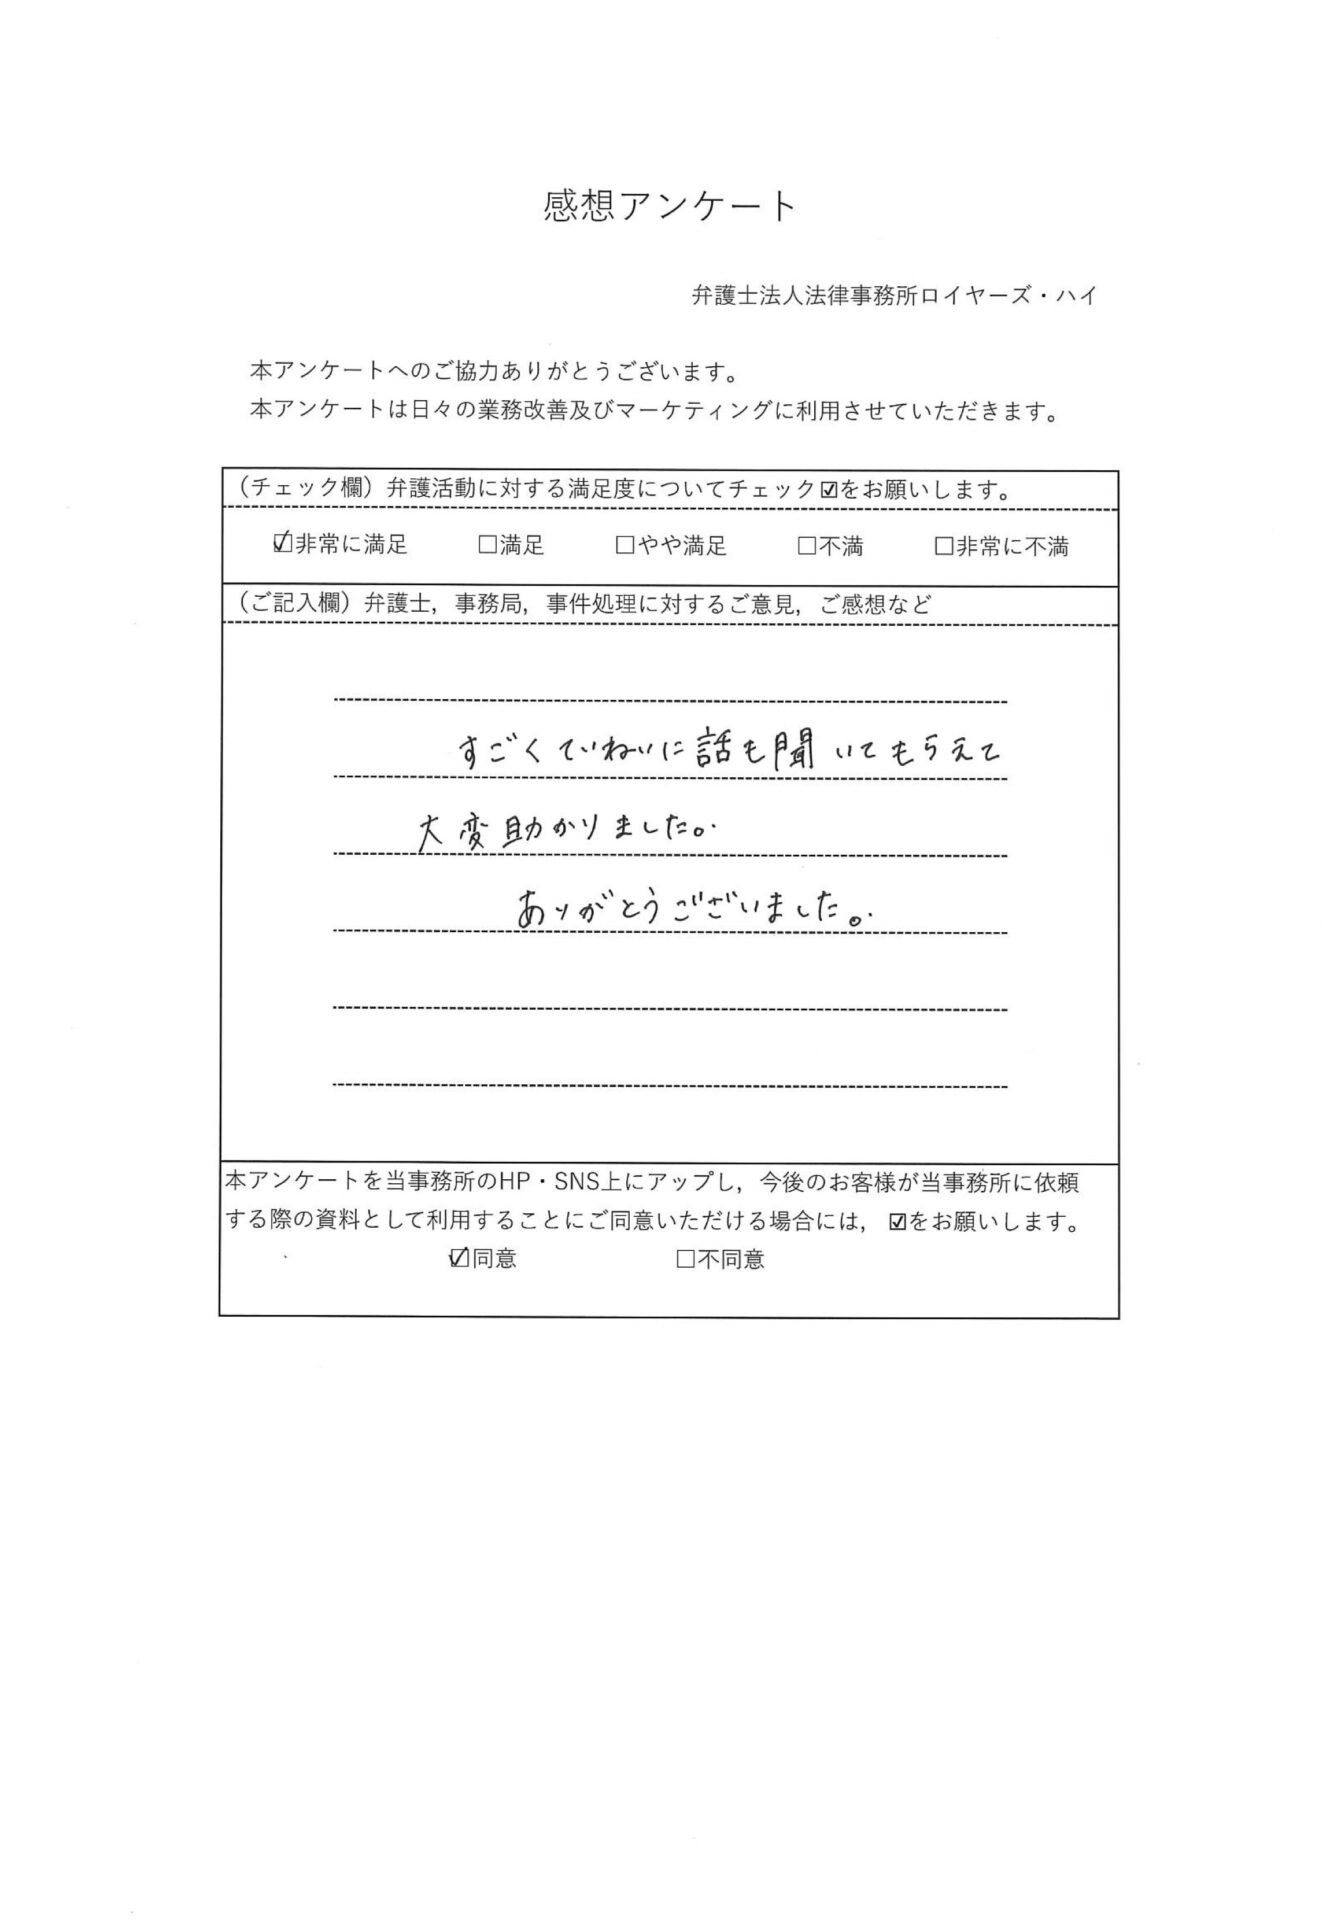 感想アンケート
弁護士法人法律事務所ロイヤーズ・ハイ
本アンケートへのご協力ありがとうございます。
本アンケートは日々の業務改善及びマーケティングに利用させていただきます。
（チェック欄）弁護活動に対する満足度についてチェック☑をお願いします。
☑非常に満足 □満足 □やや満足 □不満 □非常に不満
（ご記入欄）弁護士，事務局，事件処理に対するご意見，ご感想など
すごくていねいに話も聞いてもらえて
大変助かりました。
ありがとうございました。
本アンケートを当事務所のHP・SNS上にアップし，今後のお客様が当事務所に依頼
する際の資料として利用することにご同意いただける場合には，☑をお願いします。
☑同意 □不同意